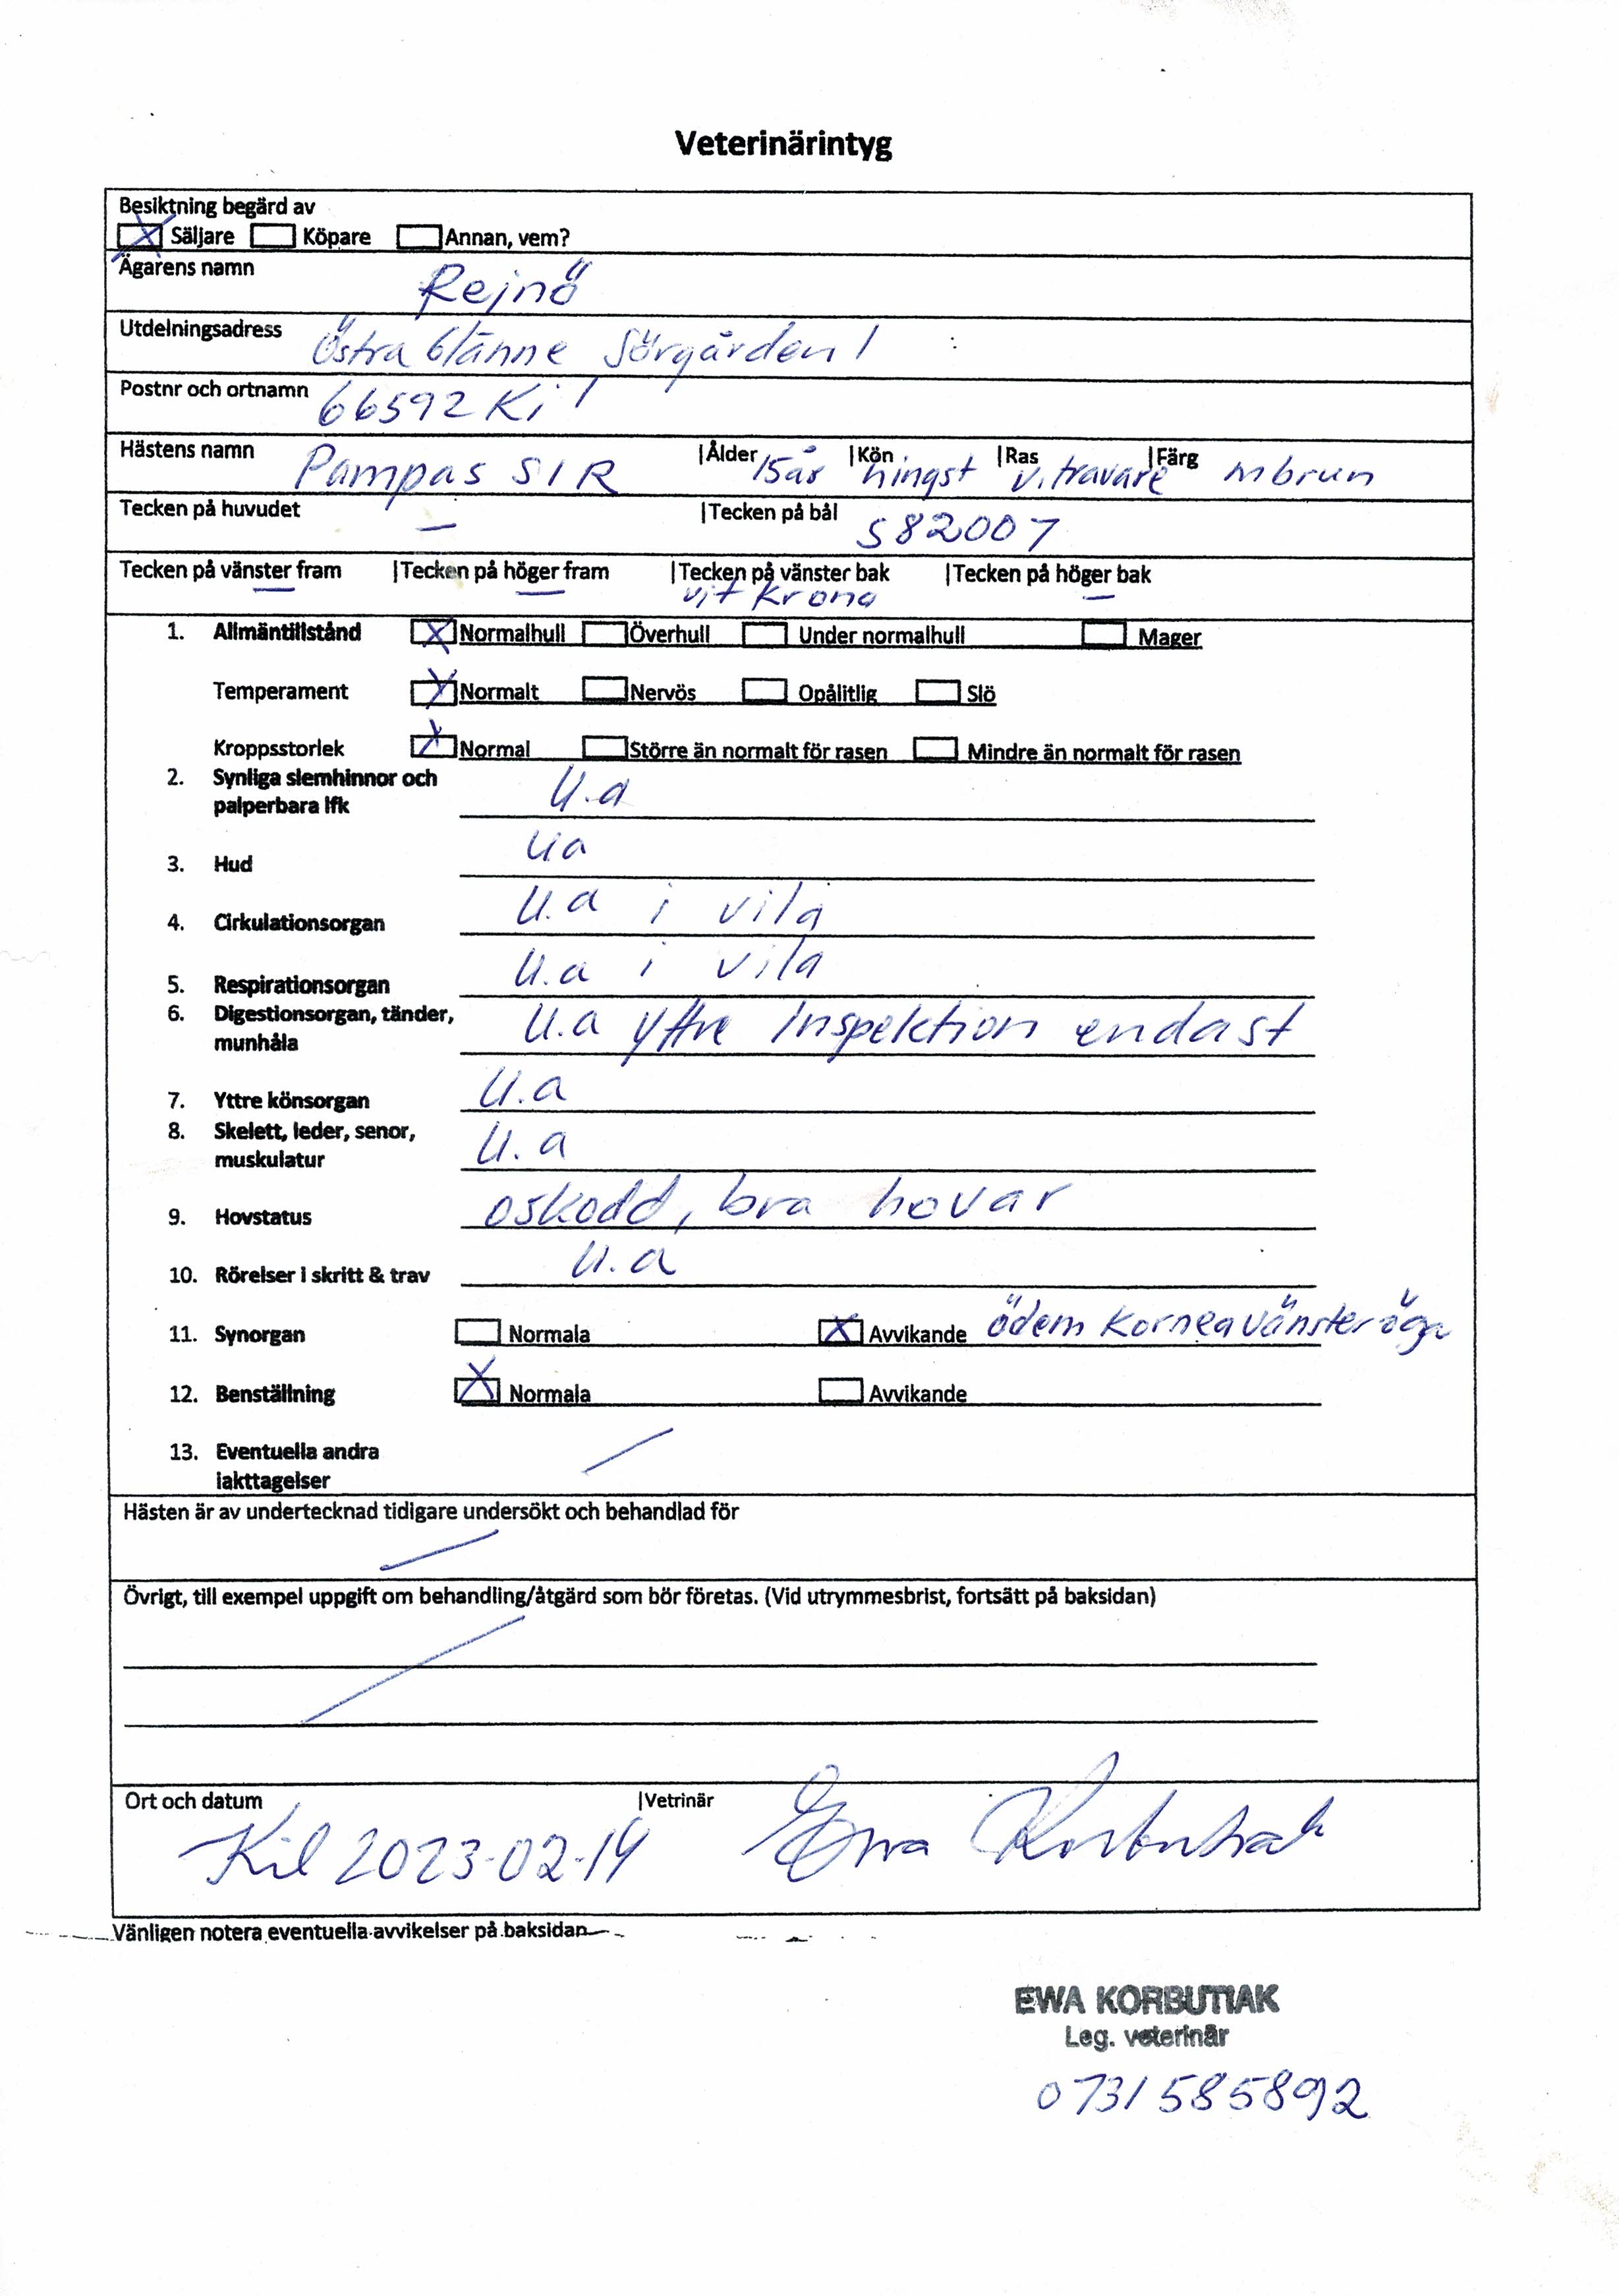 Veterinärintyg
Besiktning begärd av
Säljare Köpare Annan, vem?
Ägarens namn Rejnö
Utdelningsadress Östra Glänne Sörgården 1
Postnr och ortnamn 66592 Kil
Hästens namn Pampas S I R |Ålder 15år |Kön hingst |Ras v.travare |Färg mbrun
Tecken på huvudet — |Tecken på bål 582007
Tecken på vänster fram |Tecken på höger fram |Tecken på vänster bak |Tecken på höger bak
— — vit krona —
1. Allmäntillstånd Normalhull Överhull Under normalhull Mager
Temperament Normalt Nervös Opålitlig Slö
Kroppsstorlek Normal Större än normalt för rasen Mindre än normalt för rasen
2. Synliga slemhinnor och
palperbara lfk U.a
3. Hud ua
4. Cirkulationsorgan U.a i vila
5. Respirationsorgan U.a i vila
6. Digestionsorgan, tänder,
munhåla U.a yttre Inspektion endast
7. Yttre könsorgan U.a
8. Skelett, leder, senor,
muskulatur U.a
9. Hovstatus oskodd, bra hovar
10. Rörelser i skritt & trav U.a
11. Synorgan Normala Avvikande ödem Kornea vänster öga
12. Benställning Normala Avvikande
13. Eventuella andra
iakttagelser
Hästen är av undertecknad tidigare undersökt och behandlad för
Övrigt, till exempel uppgift om behandling/åtgärd som bör företas. (Vid utrymmesbrist, fortsätt på baksidan)
Ort och datum |Vetrinär
Kil 2023-02-14 Ewa Korbutiak
Vänligen notera eventuella avvikelser på baksidan
EWA KORBUTIAK
Leg. veterinär
0731585892